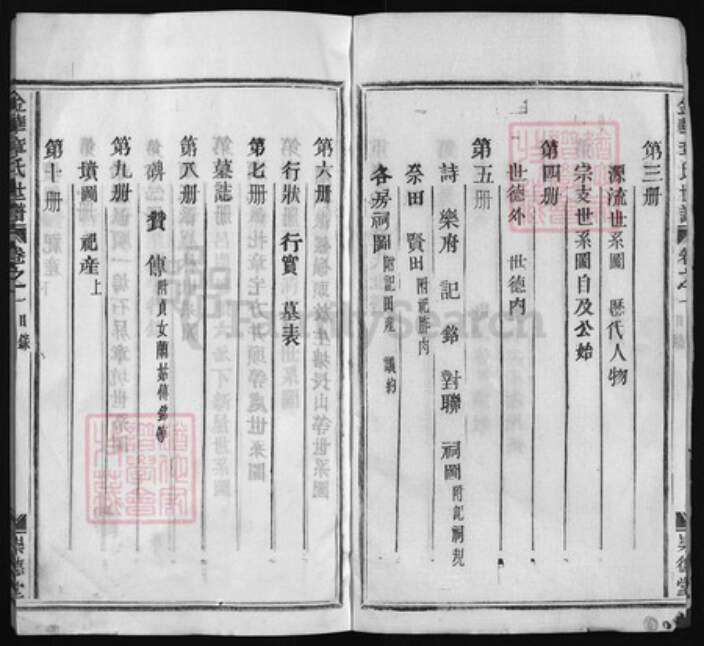 第三册
源流世系圖 歷代人物
宗支世系圖自及公始
第四册
世德外 世德内
第五册
詩 樂府 記 銘 對聯 祠圖附記祠規
祭田 賢田附記胙肉
各房祠圖附記田産 議約
第六册
行狀 行實 墓表
第七册
墓誌
第八册
碑 賛 傳附貞女蘭姑傳銘等
第九册
墳圖 祀産上
第十册
金華章氏世譜 卷之一 目錄
崇德堂
FamilySearch